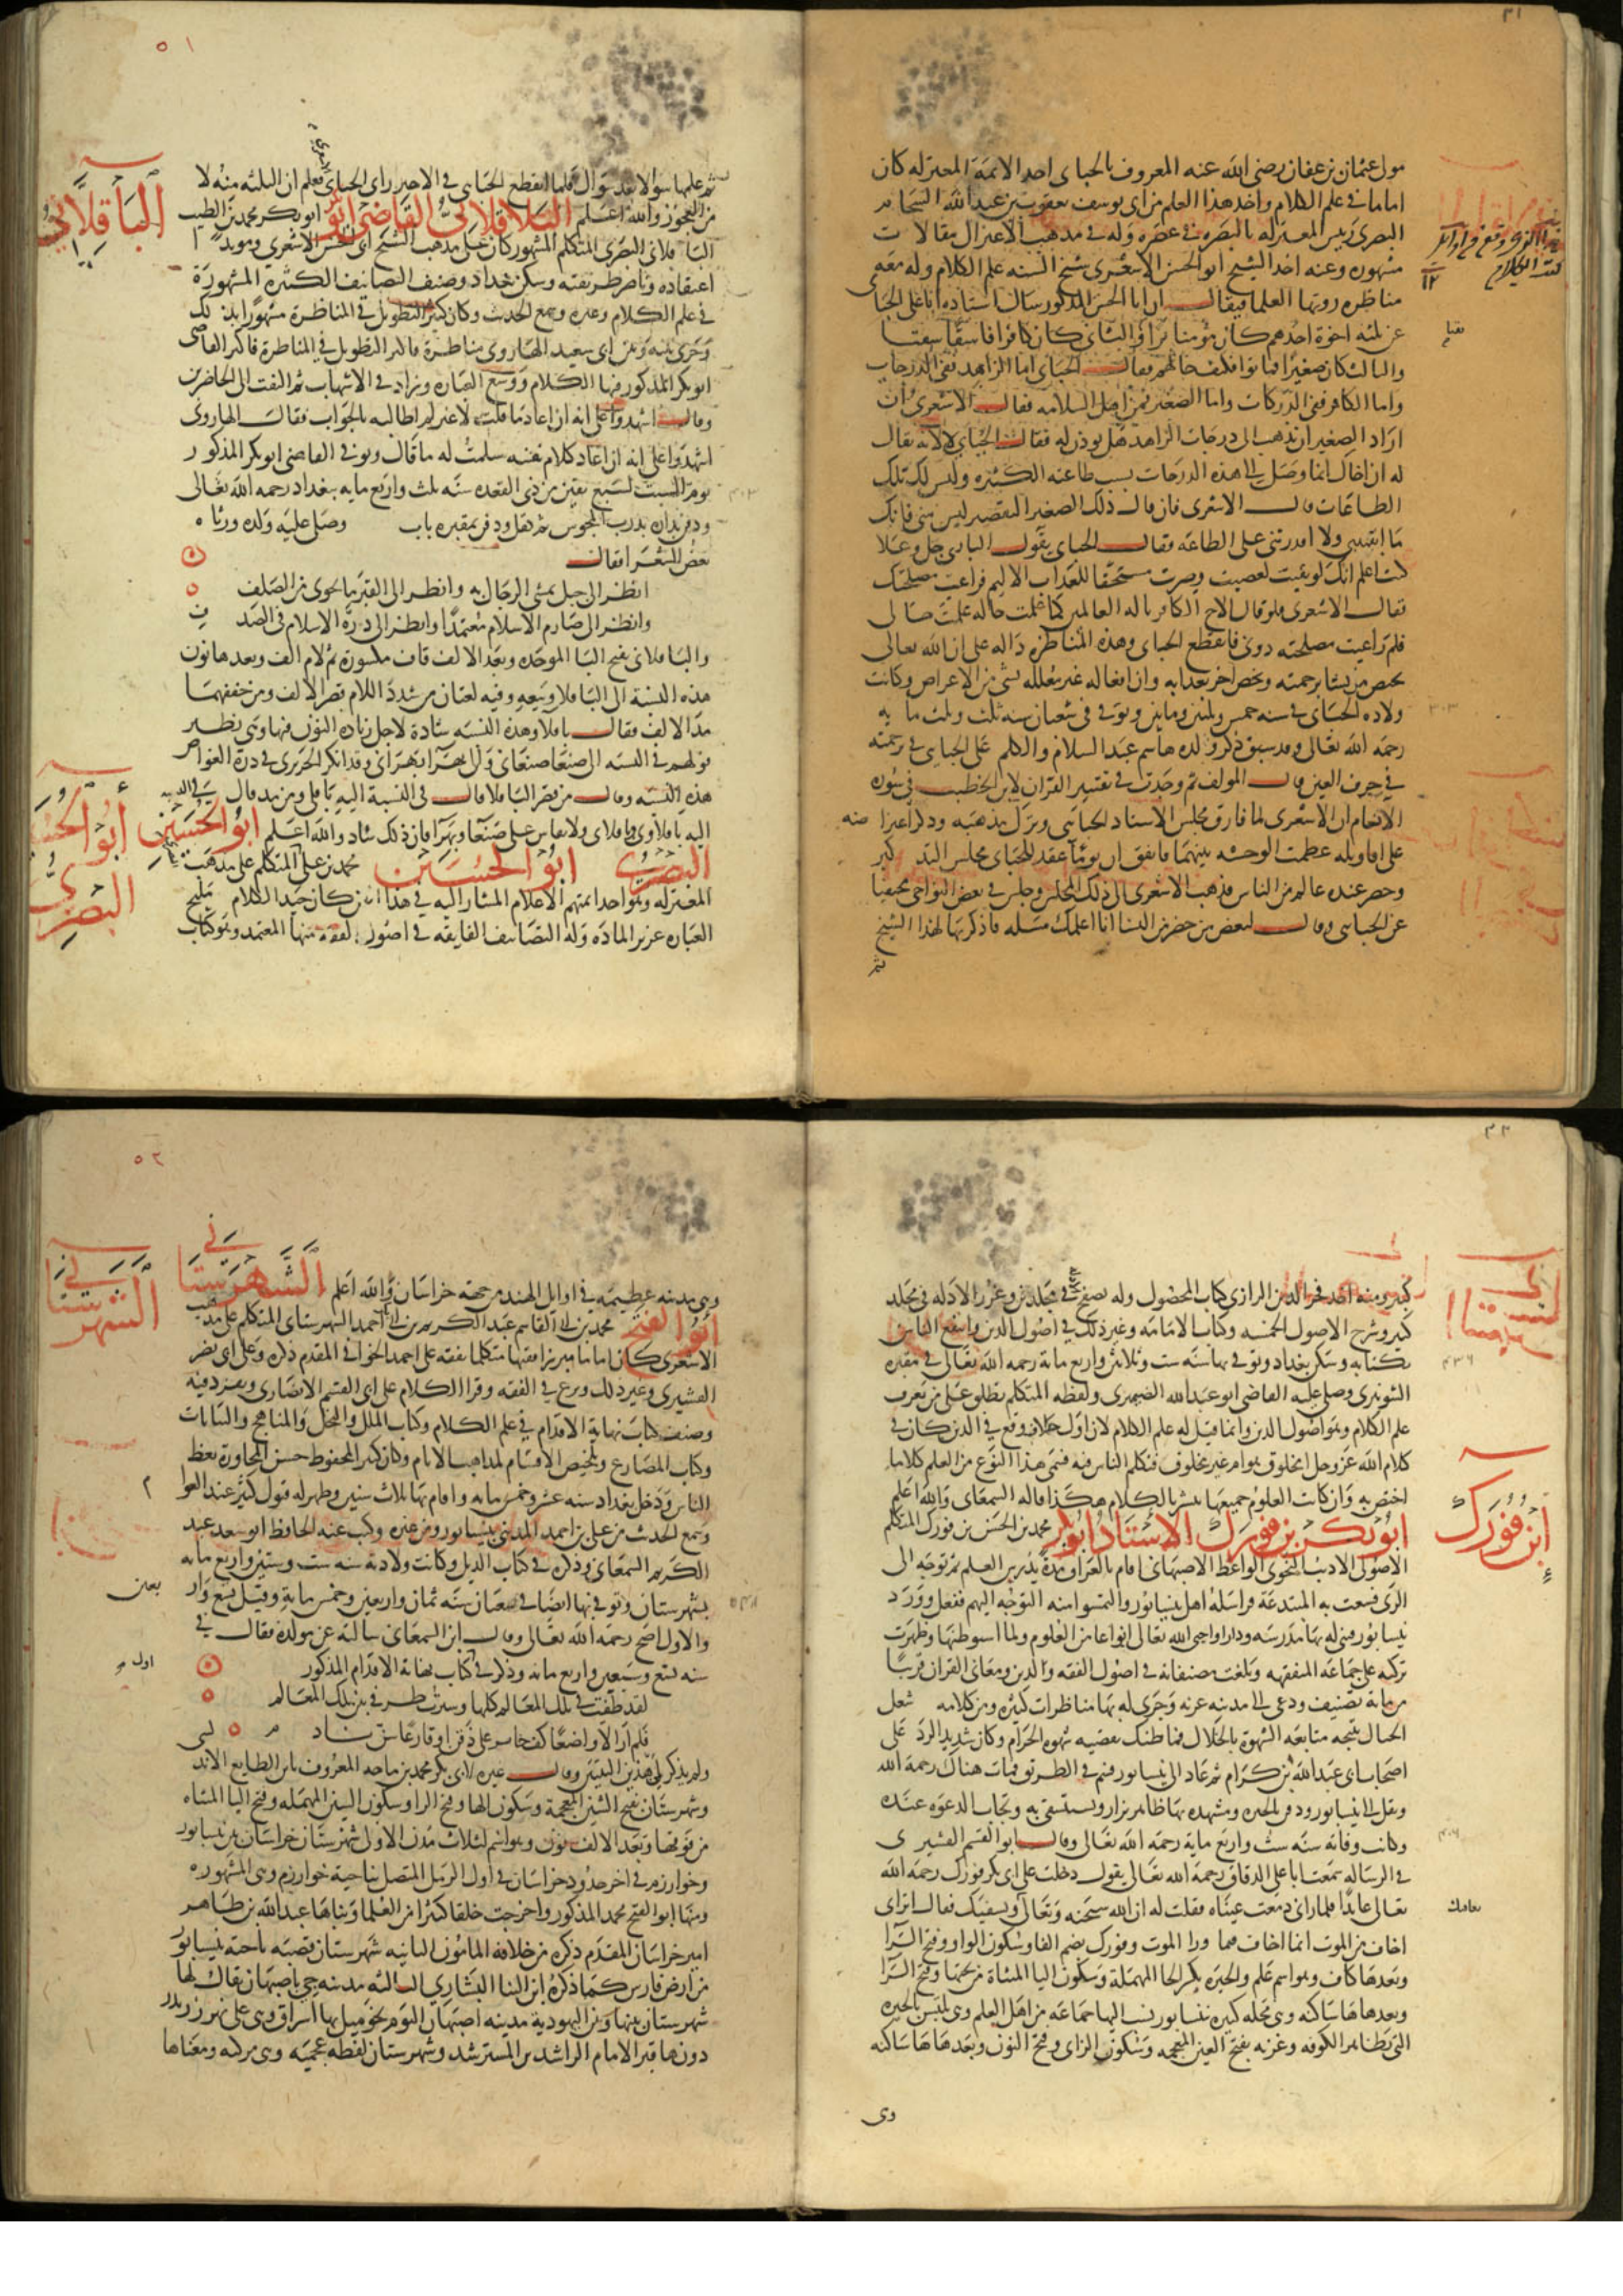 مولى عثمان بن عفان رضى الله عنه المعروف بالجباى احد الائمة المعتزله كان
اماما فى علم الكلام واخذ هذا العلم من ابى يوسف يعقوب بن عبد الله الشحام
البصرى رييس المعتزله بالبصره فى عصره وله فى مذهب الاعتزال مقالات
مشهوره وعنه اخذ الشيخ ابو الحسن الاشعرى شيخ السنه علم الكلام وله معه
مناظره روتها العلما فيقال ان ابا الحسن المذكور سال استاده ابا على الجبا
عن ثلثه اخوة احدهم كان مؤمنا برا والثانى كان كافرا فاسقا
والثالث كان صغيرا فماتوا فكيف حالهم فقال الجباى اما الزاهد ففى الدرجات
واما الكافر ففى الدركات واما الصغير فمن اهل السلامه فقال الاشعرى ان
اراد الصغير ان يذهب الى درجات الزاهد هل يوذن له فقال الجباى لا لانه يقال
له ان اخاك انما وصل الى هذه الدرجات بسبب طاعته الكثيره وليس لك تلك
الطاعات قال الاشعرى فان قال ذلك الصغير التقصير ليس منى فانك
ما ابقيتنى ولا اقدرتنى على الطاعه فقال الجباى يقول البارى جل وعلا
كنت اعلم انك لو بقيت لعصيت وصرت مستحقا للعذاب الاليم فراعيت مصلحتك
فقال الاشعرى فلو قال الاخ الكافر يا اله العالمين كما علمت حاله علمت حالى
فلم راعيت مصلحته دونى فانقطع الجباى وهذه المناظره داله على ان الله تعالى
يخص من يشا برحمته ويخص اخر بعذابه وان افعاله غير معلله بشى من الاعراض وكانت
ولادة الجباى فى سنه خمس وثلثين ومايتين وتوفى فى شعبان سنه ثلث وثلث مايه
رحمه الله تعالى وقد سبق ذكر ولده هاشم عبد السلام والكلم على الجباى فى ترجمته
فى حرف العين قال المولف ثم وجدت فى تفسير القران لابن الخطيب فى سورة
الانعام ان الاشعرى لما فارق مجلس الاستاد الجباى وترك مذهبه وذكر اعتراضه
على اقاويله عظمت الوحشه بينهما فاتفق ان يوما عقد الجباى مجلس التذكير
وحضر عنده عالم من الناس فذهب الاشعرى الى ذلك المجلس وجلس فى بعض النواحى مختفيا
عن الجباى وقال لبعض من حضر من النسا انا اعلمك مسله فاذكريها لهذا الشيخ
ثم
٥١
ثم علمها سوالا بعد سوال فلما انقطع الجباى فى الاخير راى الجباى الاشعرى فعلم ان المسله منه لا
من العجوز والله اعلم الباقلانى القاضى ابو ابو بكر محمد بن الطيب
الباقلانى
الباقلانى البصرى المتكلم المشهور كان على مذهب الشيخ ابى الحسن الاشعرى ومويدا
اعتقاده وناصر طريقته وسكن بغداد وصنف التصانيف الكثيرة المشهورة
فى علم الكلام وغيره وسمع الحديث وكان كثير التطويل فى المناظرة مشهورا بذلك
وجرى بينه وبين ابى سعيد الهارونى مناظرة فاكثر التطويل فى المناظرة فاكثر القاضى
ابو بكر المذكور فيها الكلام ووسع العباره وزاد فى الاسهاب ثم التفت الى الحاضرين
وقال اشهدوا على انه ان اعاد ما قلت لا غير لم اطالبه بالجواب فقال الهارونى
اشهدوا على انه ان اعاد كلام نفسه سلمت له ما قال وتوفى القاضى ابو بكر المذكور
يوم السبت لسبع بقين من ذى القعده سنه ثلث واربع مايه ببغداد رحمه الله تعالى
ودفن بداره بدرب المجوس ثم نقل ودفن بمقبره باب وصلى عليه ولده ورثاه
بعض الشعرا فقال
انظر الى جبل يمشى الرجال به وانظر الى القبر ما يحوى من الصلف
وانظر الى صارم الاسلام منغمدا وانظر الى درة الاسلام فى الصدف
والباقلانى بفتح البا الموحده وبعد الالف قاف مكسورة ثم لام الف وبعدها نون
هذه النسبة الى الباقلا وبيعه وفيه لغتان من شدد اللام قصر الالف ومن خففها
مد الالف فقال باقلا وهذه النسبه شاذة لاجل زيادة النون فيها وهى نظير
قولهم فى النسبه الى صنعا صنعانى والى بهرا بهرانى وقد انكر الحريرى فى درة الغواص
هذه النسبه وقال من قصر الباقلا قال فى النسبة اليه باقلى ومن مد قال فى النسبه
اليه باقلاوى وباقلاى ولا يقاس على صنعا وبهرا فان ذلك شاذ والله اعلم ابو الحسين
البصرى ابو الحسين محمد بن على المتكلم على مذهب
أبو الحسين
البصرى
المعتزله وهو احد ائمتهم الاعلام المشار اليه فى هذا الفن كان جيد الكلام مليح
العباره غزير الماده وله التصانيف الفايقه فى اصول الفقه منها المعتمد وهو كتاب
كبير ومنه اخذ فخر الدين الرازى كتاب المحصول وله تصفح فى مجلدين وغرر الادله فى مجلد
كبير وشرح الاصول الخمسه وكتاب الامامه وغير ذلك فى اصول الدين وانتفع الناس
بكتابه وسكن بغداد وتوفى بها سنه ست وثلاثين واربع مائة رحمه الله تعالى فى مقبره
الشونيزى وصلى عليه القاضى ابو عبد الله الصيمرى ولفظه المتكلم تطلق على من يعرف
علم الكلام وهو اصول الدين وانما قيل له علم الكلام لان اول خلاف وقع فى الدين كان فى
كلام الله عز وجل امخلوق هو ام غير مخلوق فتكلم الناس فيه فسمى هذا النوع من العلم كلاما
اختص به وان كانت العلوم جميعها تنشر بالكلام هكذا قاله السمعانى والله اعلم
ابو بكر بن فورك الاستاذ ابو بكر محمد بن الحسن بن فورك المتكلم
ابن فورك
الاصولى الاديب النحوى الواعظ الاصبهانى اقام بالعراق مدة يدرس العلم ثم توجه الى
الرى فسعت به المبتدعة فراسله اهل نيسابور والتمسوا منه التوجه اليهم ففعل وورد
نيسابور فبنى له بها مدرسه ودارا واحيى الله تعالى انواعا من العلوم ولما استوطنها وظهرت
بركته على جماعه المتفقهه وبلغت مصنفاته فى اصول الفقه والدين ومعانى القران قريبا
من مائة تصنيف ودعى الى مدينه غزنه وجرى له بها مناظرات كثيره ومن كلامه شغل
العيال نتيجه متابعه الشهوة بالحلال فما ظنك بقضيه شهوة الحرام وكان شديد الرد على
اصحاب ابى عبد الله بن كرام ثم عاد الى نيسابور فسم فى الطريق فمات هناك رحمه الله
ونقل الى نيسابور ودفن بالحيره ومشهده بها ظاهر يزار ويستسقى به وتجاب الدعوه عنده
وكانت وفاته سنه ست واربع مايه رحمه الله تعالى وقال ابو القسم القشيرى
فى الرساله سمعت ابا على الدقاق رحمه الله تعالى يقول دخلت على ابى بكر فورك رحمه الله
تعالى عائدا فلما رانى دمعت عيناه فقلت له ان الله سبحنه وتعالى يعافيك ويشفيك فقال اترانى
اخاف من الموت انما اخاف مما ورا الموت وفورك بضم الفا وسكون الواو وفتح الرا
وبعدها كاف وهو اسم علم والحيره بكسر الحا المهملة وسكون اليا المثناة من تحتها وفتح الرا
وبعدها ها ساكنه وهى محله كبيره بنيسابور ينسب اليها جماعه من اهل العلم وهى تلتبس بالحيره
التى بظاهر الكوفه وغزنه بفتح الغين المعجمه وسكون الزاى وفتح النون وبعدها ها ساكنه
وهى
٥٢
الشهرستانى
وهى مدينه عظيمه فى اوايل الهند من جهة خراسان والله اعلم الشهرستانى
ابو الفتح محمد بن ابى القاسم عبد الكريم بن ابى احمد الشهرستانى المتكلم على مذهب
الاشعرى كان اماما مبرزا فقيها متكلما تفقه على احمد الخوافى المقدم ذكره وعلى ابى نصر
القشيرى وغير ذلك وبرع فى الفقه وقرا الكلام على ابى القسم الانصارى وتفرد فيه
وصنف كتاب نهاية الاقدام فى علم الكلام وكتاب الملل والنحل والمناهج والبيانات
وكتاب المصارع وتلخيص الاقسام لمذاهب الانام وكان كثير المحفوظ حسن المحاورة يعظ
الناس ودخل بغداد سنه عشر وخمس مايه واقام بها ثلاث سنين وظهر له قبول كثير عند العوام
وسمع الحديث من على بن احمد المدينى بنيسابور ومن غيره وكتب عنه الحافظ ابو سعد عبد
الكريم السمعانى وذكره فى كتاب الذيل وكانت ولادته سنه ست وستين واربع مايه
بشهرستان وتوفى بها ايضا فى شعبان سنه ثمان واربعين وخمس ماية وقيل تسع واربعين
والاول اصح رحمه الله تعالى وقال ابن السمعانى سالته عن مولده فقال فى
سنه تسع وسبعين واربع مائه وذكر فى كتاب نهاية الاقدام المذكور
لقد طفت فى تلك المعالم كلها وسيرت طرفى بين تلك المعالم
فلم ار الا واضعا كف حاير على ذقن او قارعا سن نادم
ولم يذكر لمن هذين البيتين وقال غيره لابى بكر محمد بن ماجه المعروف بابن الصايغ الاندلسى
وشهرستان بفتح الشين المعجمة وسكون الها وفتح الرا وسكون السين المهمله وفتح التا المثناه
من فوقها وبعد الالف نون وهو اسم لثلاث مدن الاولى شهرستان خراسان بين نيسابور
وخوارزم فى اخر حدود خراسان فى اول الرمل المتصل بناحية خوارزم وهى المشهوره
ومنها ابو الفتح محمد المذكور واخرجت خلقا كثيرا من العلما وبناها عبد الله بن طاهر
امير خراسان المقدم ذكره من خلافة المامون الثانيه شهرستان قصبه ناحية نيسابور
من ارض فارس كما ذكره ابن البنا البشارى الثالثه مدينه جى باصبهان يقال لها
شهرستان بينها وبين اليهودية مدينه اصبهان اليوم نحو ميل بها اسواق وهى على نهر زرندرود
دونها قبر الامام الراشد بن المسترشد وشهرستان لفظه عجميه وهى مركبه ومعناها